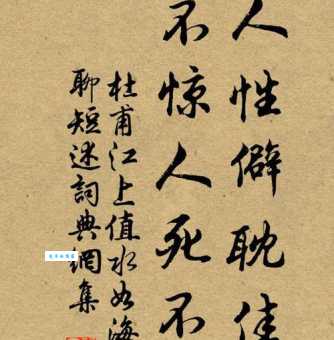 人性僻耽佳
不惊人死不
杜甫江上值水如海
聊短述詞典網集